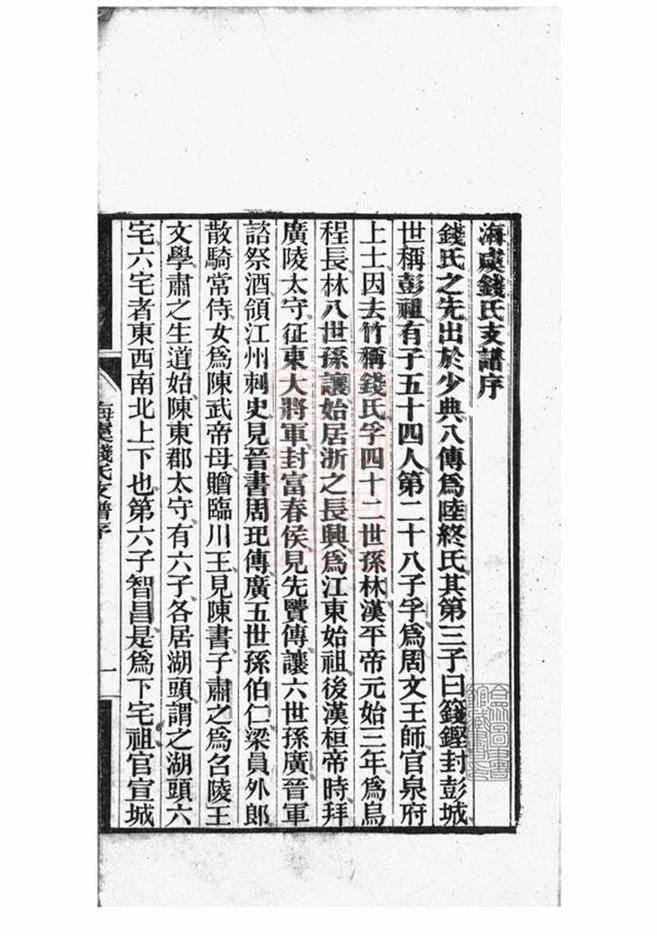 海虞錢氏支譜序
錢氏之先出於少典八傳爲陸終氏其第三子曰籛鏗封彭城
世稱彭祖有子五十四人第二十八子孚爲周文王師官泉府
上士因去竹稱錢氏孚四十二世孫林漢平帝元始三年爲烏
程長林八世孫讓始居浙之長興爲江東始祖後漢桓帝時拜
廣陵太守征東大將軍封富春侯見先賢傳讓六世孫廣晉軍
諮祭酒領江州刺史見晉書周玘傳廣五世孫伯仁梁員外郎
散騎常侍女爲陳武帝母贈臨川王見陳書子肅之爲名陵王
文學肅之生道始陳東郡太守有六子各居湖頭謂之湖頭六
宅六宅者東西南北上下也第六子智昌是爲下宅祖官宣城
海虞錢氏支譜序
一